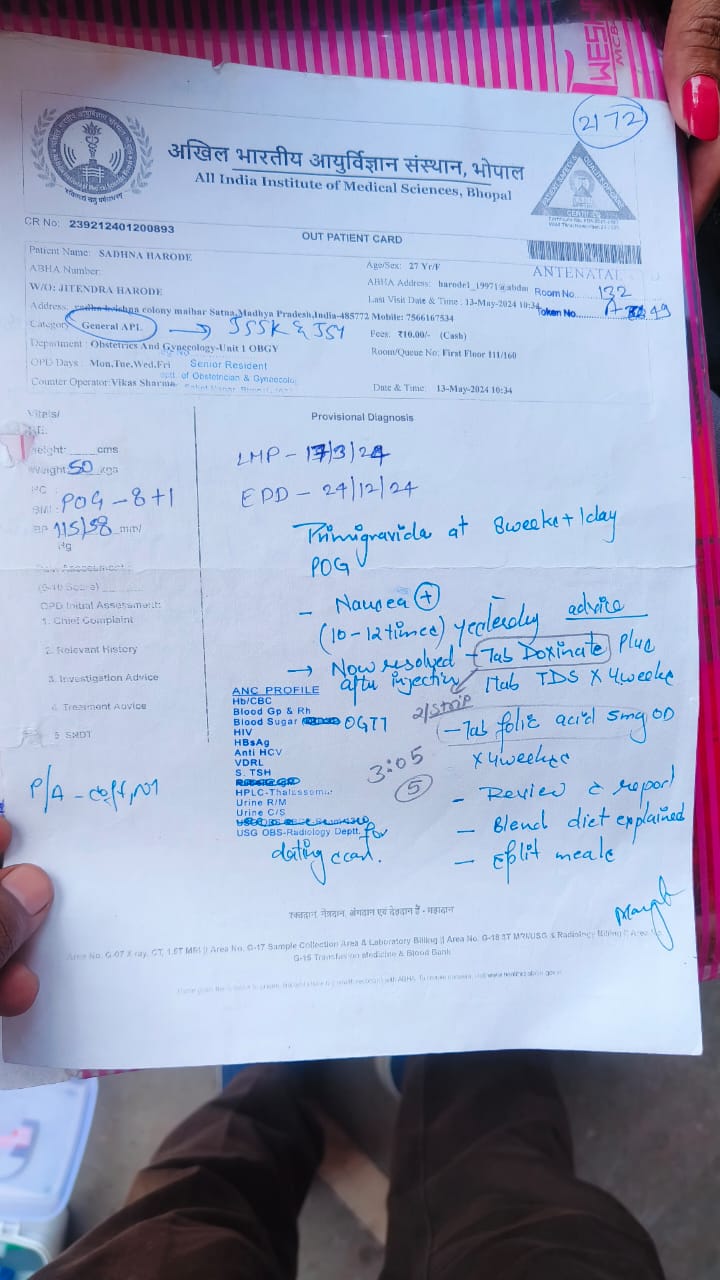 2172
अखिल भारतीय आयुर्विज्ञान संस्थान, भोपाल
All India Institute of Medical Sciences, Bhopal
CR No: 239212401200893
OUT PATIENT CARD
Patient Name: SADHNA HARODE
Age/Sex: 27 Yr/F
ANTENATAL
ABHA Number:
ABHA Address: harode1_19971@abdm
W/O: JITENDRA HARODE
Last Visit Date & Time : 13-May-2024 10:34
Room No. 132
Address: radha krishna colony maihar Satna,Madhya Pradesh,India-485772 Mobile: 7566167534
Token No. A 49
Category: General APL → JSSK & JSY
Fees: ₹10.00/- (Cash)
Department : Obstetrics And Gynecology-Unit 1 OBGY
Room/Queue No: First Floor 111/160
OPD Days : Mon,Tue,Wed,Fri
Senior Resident
Dept. of Obstetrician & Gynaecology
Counter Operator: Vikas Sharma
Date & Time: 13-May-2024 10:34
Vitals/
Provisional Diagnosis
Height: cms
Weight: 50 kgs
BMI:
POG - 8+1
BP 115/58 mm/
Hg
LMP - 17/3/24
EDD - 24/12/24
Primigravida at 8weeks + 1day
POG
- Nausea +
(10-12 times) yesterday
→ Now resolved
after injection
advice
- Tab Doxinate plus
1tab TDS X 4weeks
2/strip
- Tab folic acid 5mg OD
X 4weeks
3:05
5
- Review c report
- Blend diet explained
- Split meals
OPD Initial Assessment:
1. Chief Complaint
2. Relevant History
3. Investigation Advice
4. Treatment Advice
5
P/A - soft, NT
ANC PROFILE
Hb/CBC
Blood Gp & Rh
Blood Sugar OGTT
HIV
HBsAg
Anti HCV
VDRL
S. TSH
HPLC-Thalassemia
Urine R/M
Urine C/S
USG OBS-Radiology Deptt. for
dating scan.
रक्तदान, नेत्रदान, अंगदान एवं देहदान हैं - महादान
Area No. G-07 X ray, CT, 1.5T MRI || Area No. G-17 Sample Collection Area & Laboratory Billing || Area No. G-18 3T MRI/USG & Radiology Billing || Area No.
G-15 Transfusion Medicine & Blood Bank